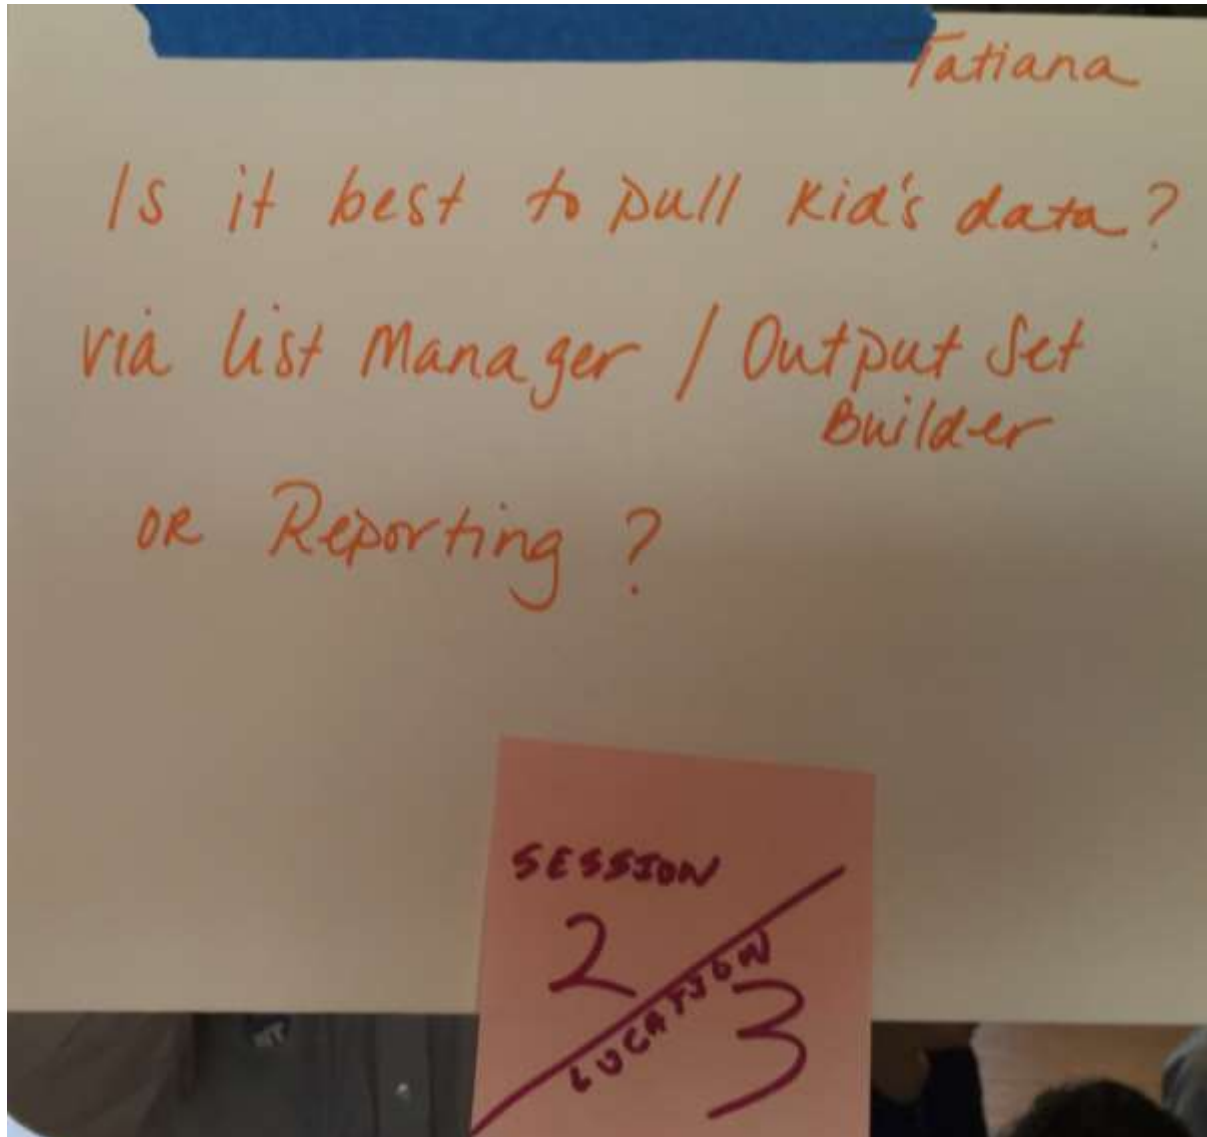 Tatiana
Is it best to pull kid's data?
via List Manager / Output Set
Builder
OR Reporting?
SESSION
2
LOCATION
3